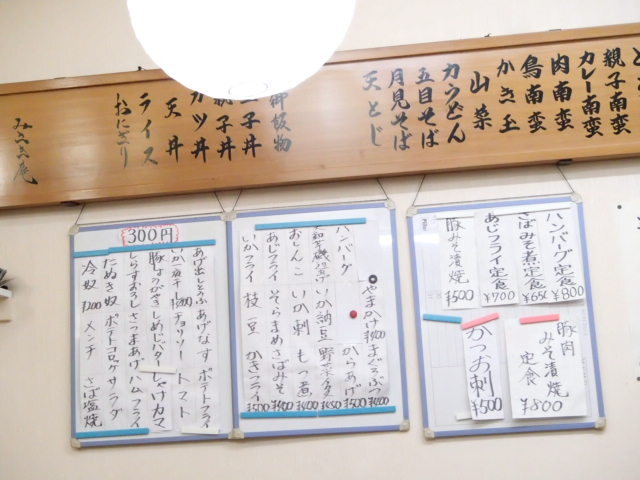 親子南蛮
カレー南蛮
肉南蛮
鳥南蛮
かき玉
山菜
力うどん
五目そば
月見そば
天とじ
御飯物
玉子丼
親子丼
カツ丼
天丼
ライス
おにぎり
ハンバーグ定食 ¥800
さばみそ煮定食 ¥650
あじフライ定食 ¥700
豚みそ漬焼 ¥500
豚肉みそ漬焼定食 ¥800
かつお刺 ¥500
まぐろぶつ ¥400
やまかけ ¥400
からあげ ¥500
ハンバーグ
野菜天 ¥450
いか納豆
もつ煮 ¥400
いか刺
おしんこ
さばみそ ¥400
そらまめ
あじフライ
かきフライ ¥500
枝豆
いかフライ
300円
あげ出しとうふ あげなす ポテトフライ
チョリソー トマト
しめじバター しゃけカマ
しらすおろし さつまあげ ハムフライ
たぬき奴 ポテトコロッケ サラダ
冷奴 ¥200 メンチ さば塩焼